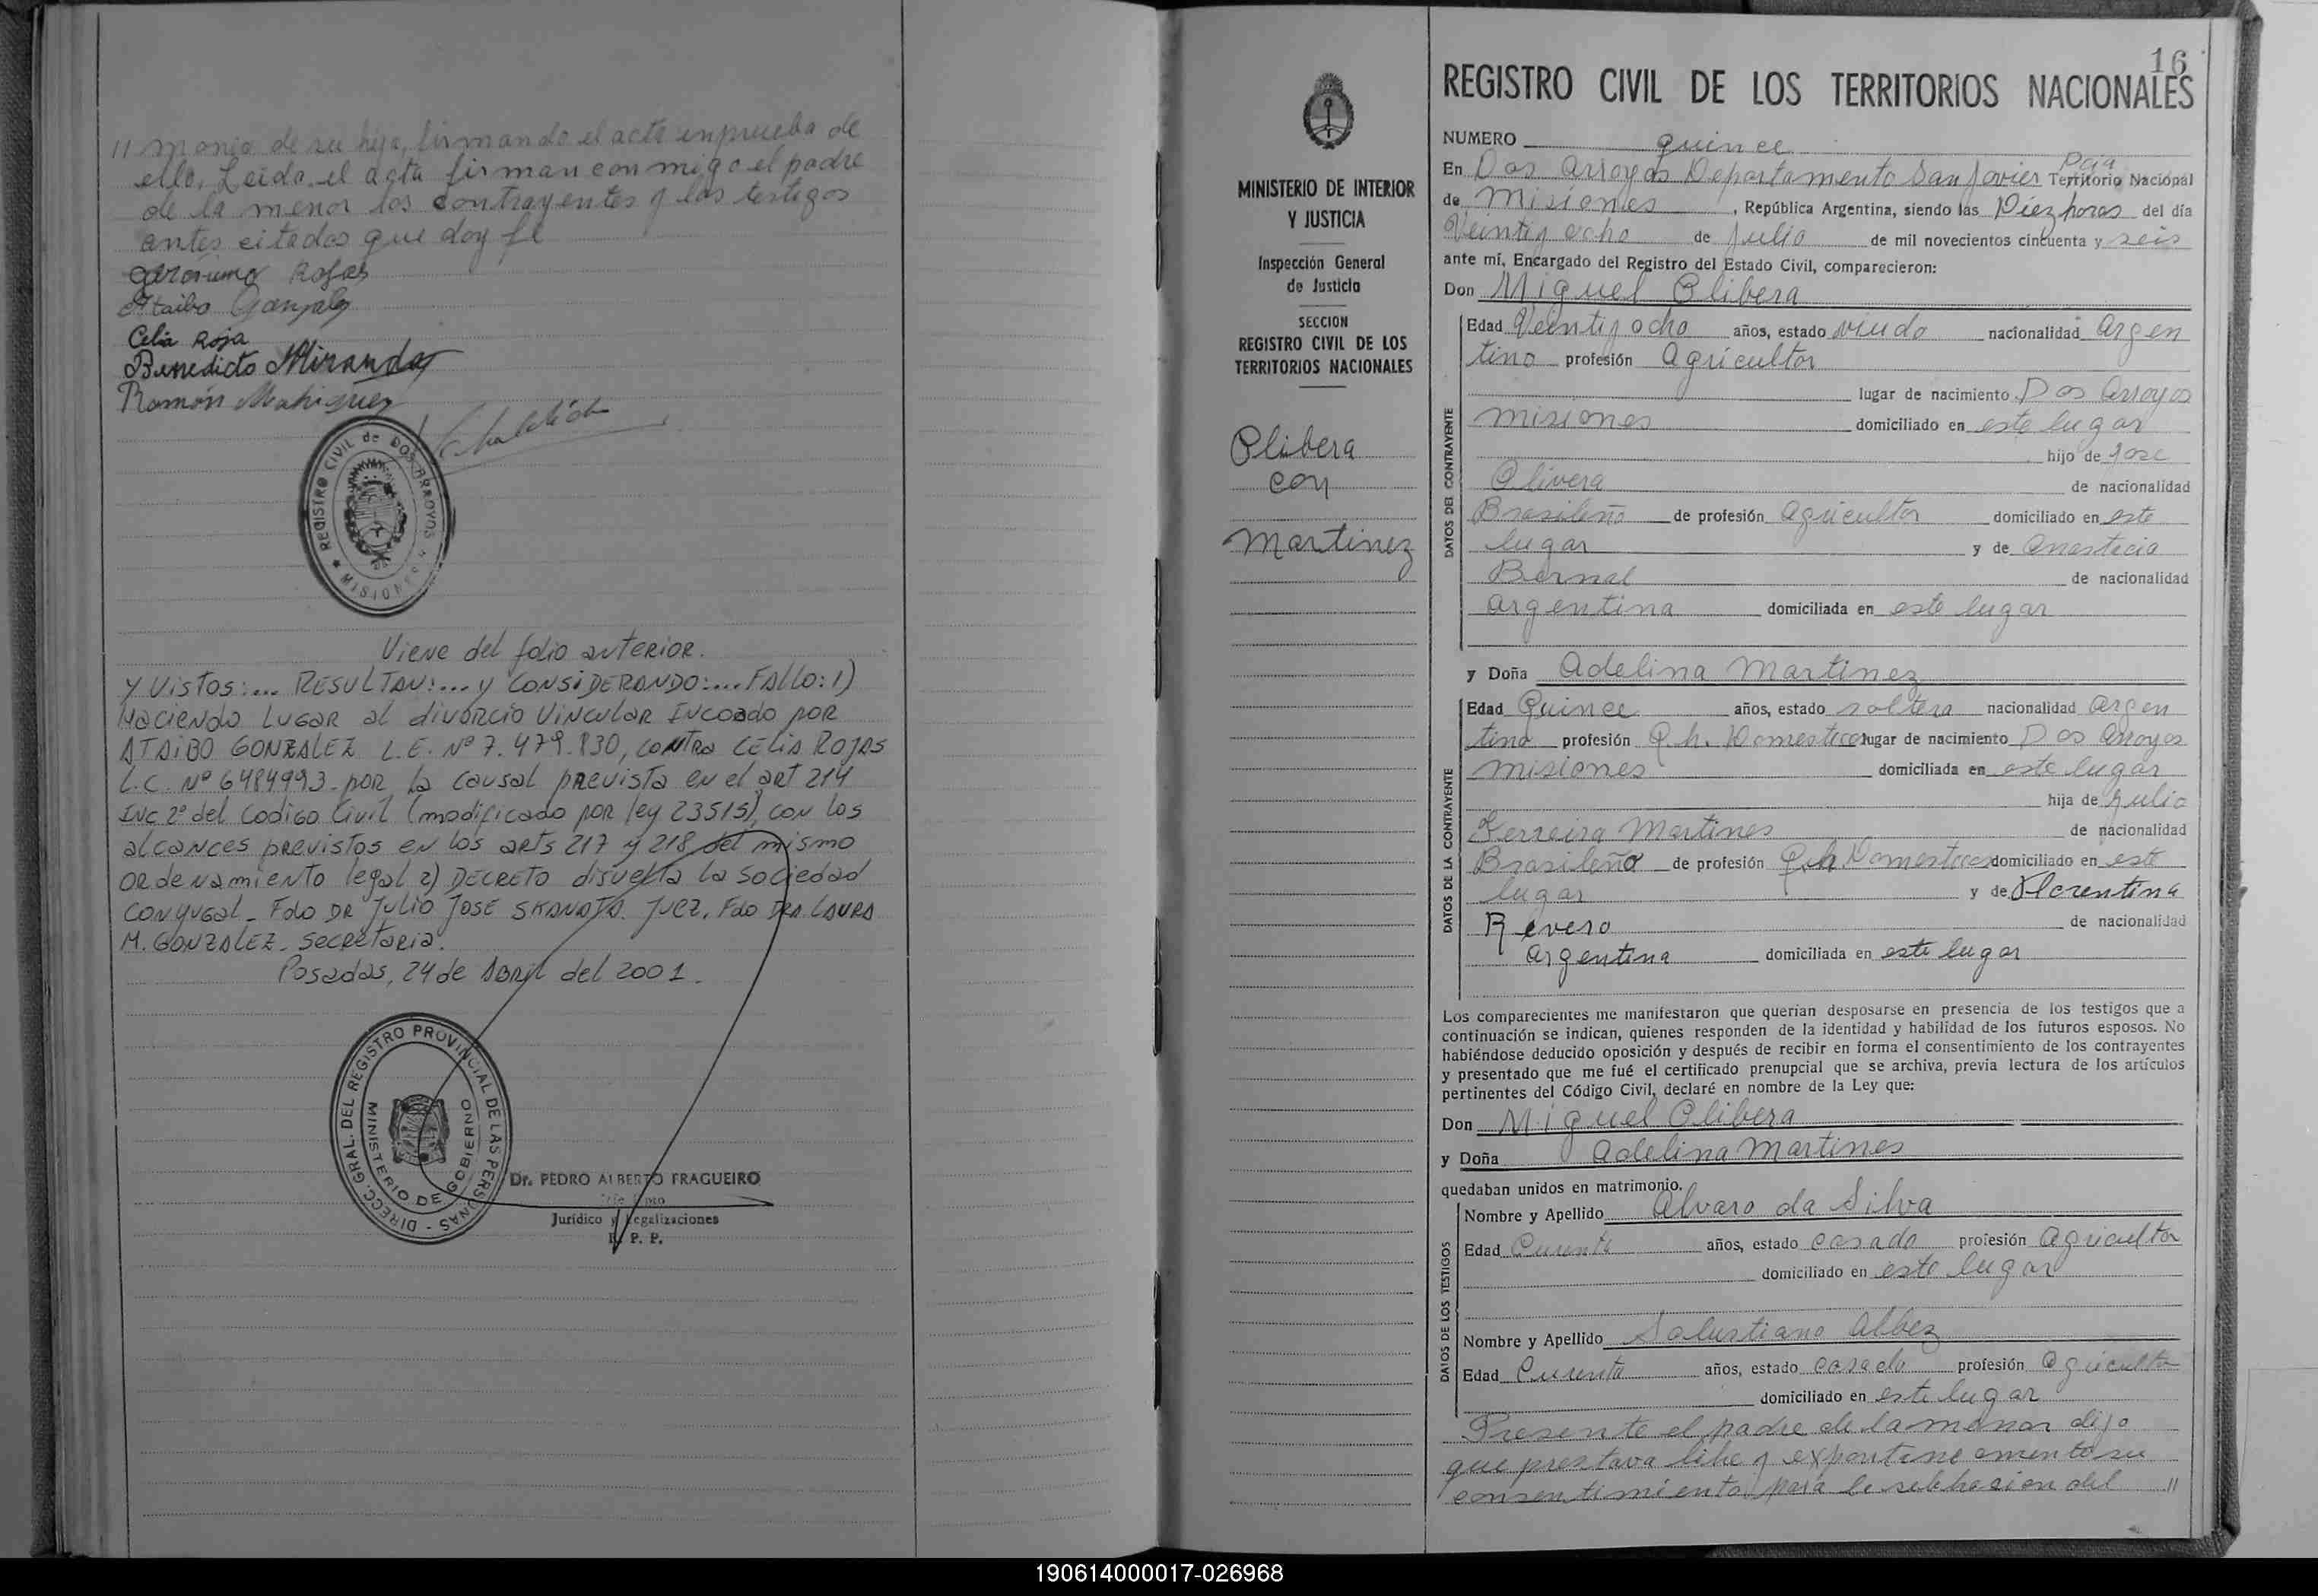 // monio de su hija, firmando el acto enprueba de
ello, Leido el acta firman con migo el padre
de la menor los contrayentes y los testigos
antes citados que doy fe
Gerónimo Rojas
Ataibo Gonzalez
Celia Roja
Benedicto Miranda
Ramón
REGISTRO CIVIL de DOS ARROYOS
★ MISIONES ★
Viene del folio anterior.
y Vistos:... RESULTAN:... y CONSIDERANDO:... FALLO: 1)
Haciendo lugar al divorcio vincular incoado por
ATAIBO GONZALEZ L.E. Nº 7.479.830, contra CELIA ROJAS
L.C. Nº 6484993 por la causal prevista en el art 214
Inc 2º del Codigo Civil (modificado por ley 23515), con los
alcances previstos en los arts 217 y 218 del mismo
ordenamiento legal 2) DECRETO disuelta la sociedad
conyugal_ Fdo DR Julio JOSE SKANATA. Juez. Fdo DRA LAURA
M. GONZALEZ_ Secretaria.
Posadas, 24 de Abril del 2001.
DIRECC. GRAL. DEL REGISTRO PROVINCIAL DE LAS PERSONAS -
MINISTERIO DE GOBIERNO
Dr. PEDRO ALBERTO FRAGUEIRO
Jurídico y Legalizaciones
R. P. P.
MINISTERIO DE INTERIOR
Y JUSTICIA
Inspección General
de Justicia
SECCION
REGISTRO CIVIL DE LOS
TERRITORIOS NACIONALES
Olibera
con
Martinez
16
REGISTRO CIVIL DE LOS TERRITORIOS NACIONALES
NUMERO quince
En Dos Arroyos Departamento San Javier Pcia Territorio Nacional
de Misiones , República Argentina, siendo las Diez horas del día
Veinti y ocho de Julio de mil novecientos cincuenta y seis
ante mí, Encargado del Registro del Estado Civil, comparecieron:
Don Miguel Olibera
DATOS DEL CONTRAYENTE
Edad Veinti y ocho años, estado viudo nacionalidad Argen
tino profesión Agricultor
lugar de nacimiento Dos Arroyos
Misiones domiciliado en este lugar
hijo de Jose
Olivera de nacionalidad
Brasileño de profesión Agricultor domiciliado en este
lugar y de Anastecia
Bernal de nacionalidad
Argentina domiciliada en este lugar
y Doña Adelina Martinez
DATOS DE LA CONTRAYENTE
Edad Quince años, estado soltera nacionalidad Argen
tina profesión Q. h. Domesticos lugar de nacimiento Dos Arroyos
Misiones domiciliada en este lugar
hija de Julio
Ferreira Martines de nacionalidad
Brasileño de profesión Q. h Domesticos domiciliado en este
lugar y de Florentina
Rivero de nacionalidad
Argentina domiciliada en este lugar
Los comparecientes me manifestaron que querían desposarse en presencia de los testigos que a
continuación se indican, quienes responden de la identidad y habilidad de los futuros esposos. No
habiéndose deducido oposición y después de recibir en forma el consentimiento de los contrayentes
y presentado que me fué el certificado prenupcial que se archiva, previa lectura de los artículos
pertinentes del Código Civil, declaré en nombre de la Ley que:
Don Miguel Olibera
y Doña Adelina Martines
quedaban unidos en matrimonio.
DATOS DE LOS TESTIGOS
Nombre y Apellido Alvaro da Silva
Edad Curenta años, estado casado profesión Agricultor
domiciliado en este lugar
Nombre y Apellido Salustiano Albez
Edad Curenta años, estado casado profesión Agricultor
domiciliado en este lugar
Presente el padre de la menor dijo
que prestava libre y expontaneamento su
consentimiento para la selebracion del //
190614000017-026968